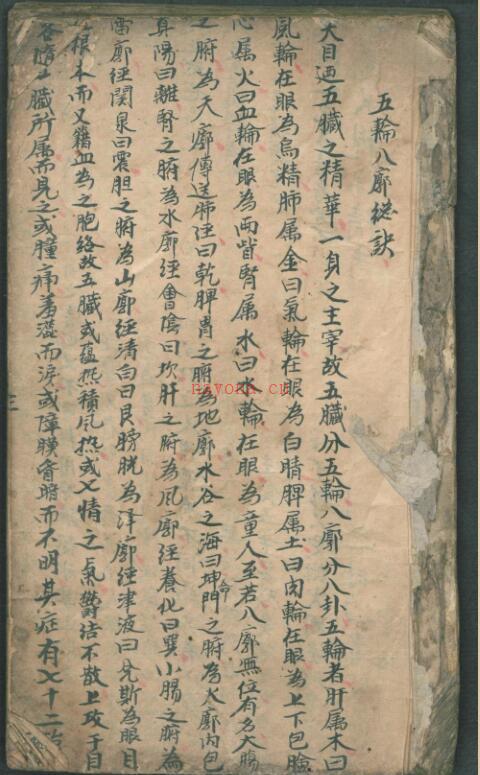 五輪八廓總訣
夫目迺五臟之精華一身之主宰故五臟分五輪八廓分八卦五輪者肝属木曰
風輪在眼為烏精肺属金曰氣輪在眼為白睛脾属土曰肉輪在眼為上下包瞼
心属火曰血輪在眼為两眥腎属水曰水輪在眼為童人至若八廓無位有名大腸
之腑為天廓傳送肺經曰乾脾胃之腑為地廓水谷之海曰坤命門之腑為火廓内包
真陽曰離腎之腑為水廓經會陰曰坎肝之腑為風廓經養化曰巽小腸之腑為
雷廓經関泉曰震胆之腑為山廓經清白曰艮膀胱為澤廓經津液曰兌斯為眼目
根本而又籍血為之胞絡故五臟或蘊熱積風热或七情之氣鬱结不散上攻于目
各隨臟所属而見之或腫痛羞澁而淚或障膜昏暗而不明其症有七十二治
nayona.cn